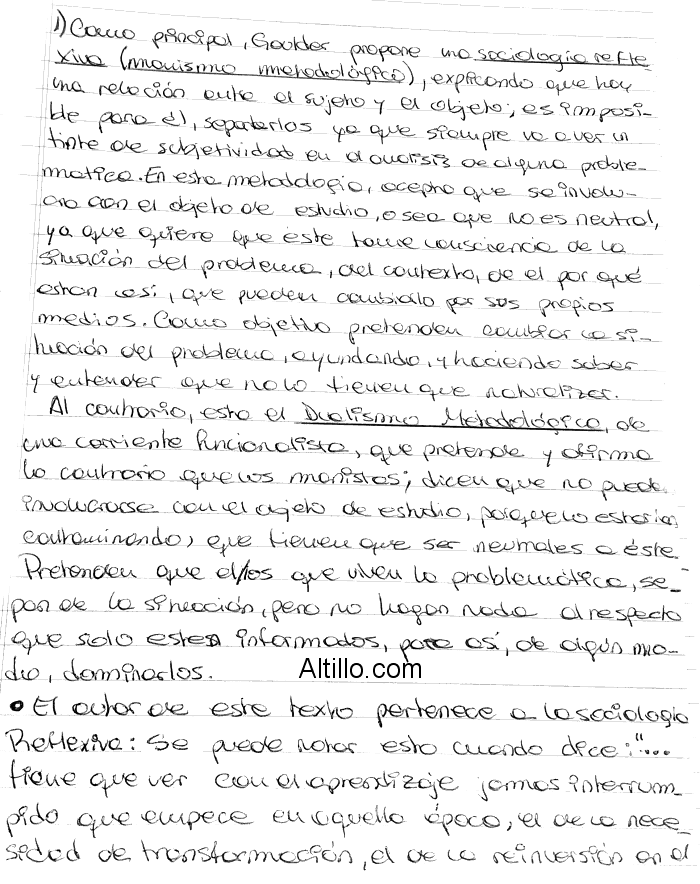 1) Como principal, Goulder propone una sociología refle-
xiva (monismo metodológico), explicando que hay
una relación entre el sujeto y el objeto; es imposi-
ble para él, separarlos ya que siempre va a ver un
tinte de subjetividad en el analisis de alguna proble-
matica. En esta metodologia, acepta que se involu-
cra con el objeto de estudio, o sea que no es neutral,
ya que quiere que éste tome consciencia de la
situación del problema, del contexto, de el por qué
estan así, que pueden cambiarlo por sus propios
medios. Como objetivo pretenden cambiar la si-
tuación del problema, ayundando, y haciendo saber
y entender que no lo tienen que naturalizar.
Al contrario, esta el Dualismo Metodológico, de
una corriente funcionalista, que pretende y afirma
lo contrario que los monistas; dicen que no puede
involucrarse con el objeto de estudio, porque lo estarían
contaminando, que tienen que ser neutrales a éste.
Pretenden que el/los que viven la problemática, se-
pan de la situación, pero no hagan nada al respecto
que solo esten informados, para así, de algún mo-
do, dominarlos.
Altillo.com
• El autor de este texto pertenece a la sociología
Reflexiva: Se puede notar esto cuando dice: "...
tiene que ver con el aprendizaje jamas interrum-
pido que empece en aquella época, el de la nece-
sidad de transformación, el de la reinversión en el